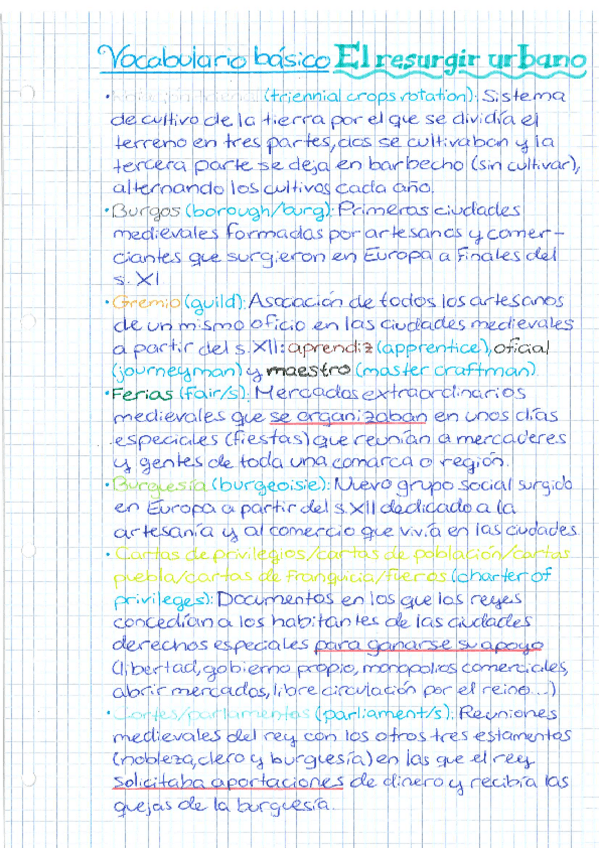 Vocabulario básico El resurgir urbano
(triennial crops rotation): Sistema
de cultivo de la tierra por el que se dividía el
terreno en tres partes, dos se cultivaban y la
tercera parte se deja en barbecho (sin cultivar),
alternando los cultivos cada año.
·Burgos (borough/burg): Primeras ciudades
medievales formadas por artesanos y comer-
ciantes que surgieron en Europa a finales del
s. XI
·Gremio (guild): Asociación de todos los artesanos
de un mismo oficio en las ciudades medievales
a partir del s. XII: aprendiz (apprentice), oficial
(journeyman) y maestro (master craftman)
·Ferias (fair/s): Mercados extraordinarios
medievales que se organizaban en unos días
especiales (fiestas) que reunían a mercaderes
y gentes de toda una comarca o región.
·Burguesía (burgeoisie): Nuevo grupo social surgido
en Europa a partir del s. XII dedicado a la
artesanía y al comercio que vivía en las ciudades.
·Cartas de privilegios/cartas de población/cartas
puebla/cartas de franquicia/fueros (charter of
privileges): Documentos en los que los reyes
concedían a los habitantes de las ciudades
derechos especiales para ganarse su apoyo
(libertad, gobierno propio, monopolios comerciales,
abrir mercados, libre circulación por el reino...)
·Cortes/parlamentos (parliament/s): Reuniones
medievales del rey con los otros tres estamentos
(nobleza, clero y burguesía) en las que el rey
solicitaba aportaciones de dinero y recibía las
quejas de la burguesía.